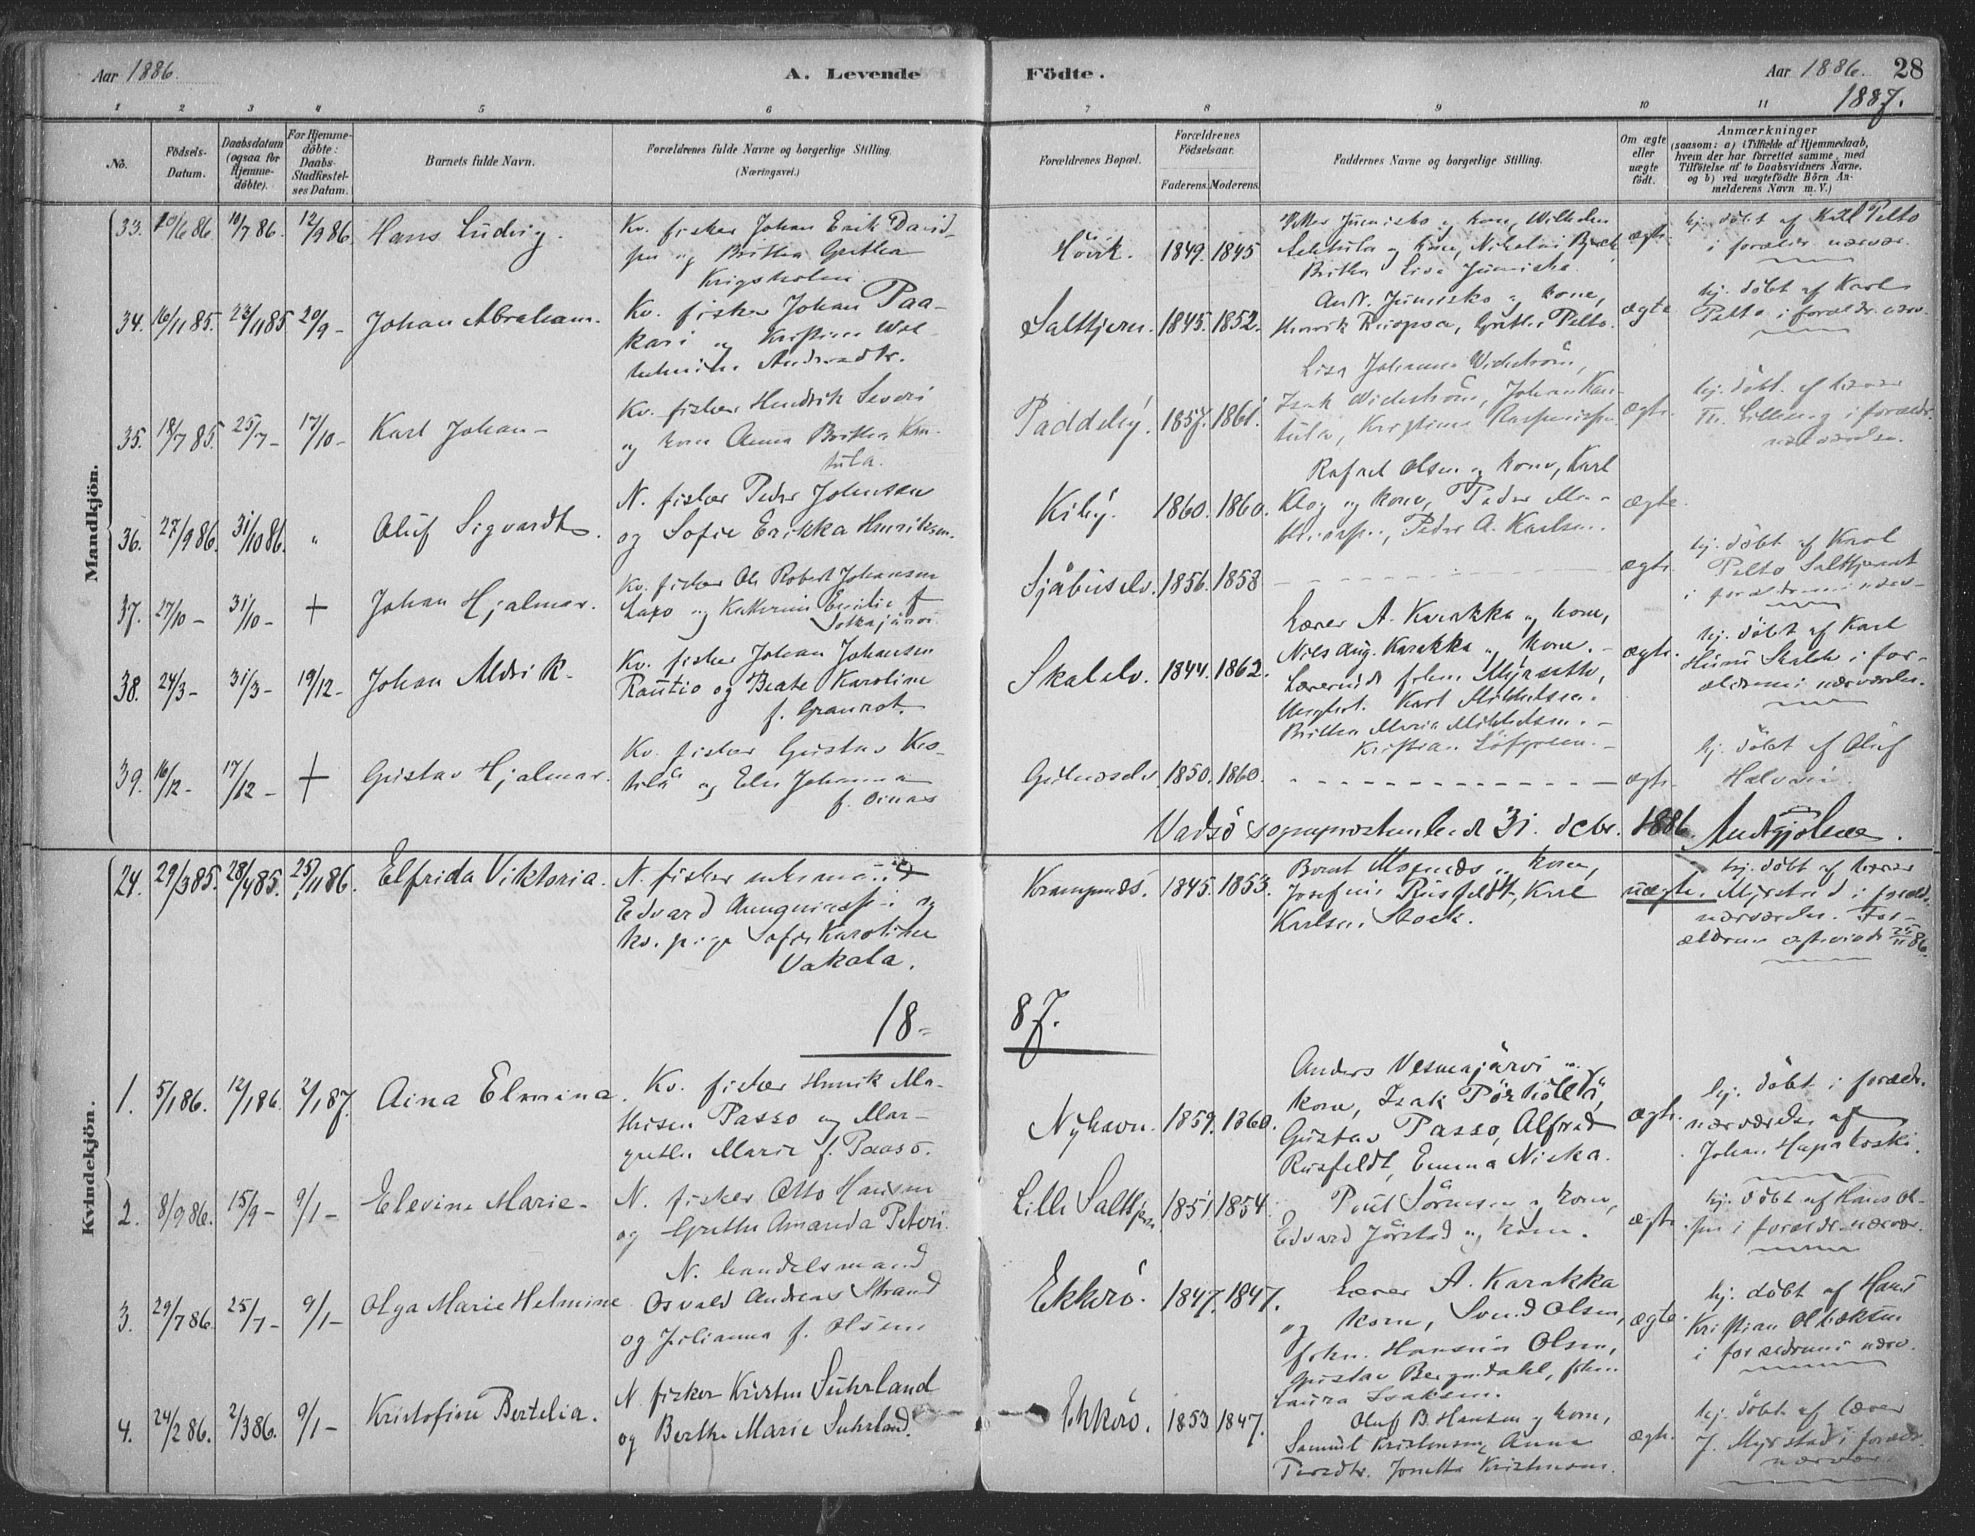 Aar 1886.
A. Levende
Födte.
Aar 1886. 28
1887.
1 2 3 4 5 6 7 8 9 10 11
No.
Födsels-Datum.
Daabsdatum (ogsaa for Hjemme-döbte).
For Hjemme-döbte: Daabs-Stadfæstel-ses Datum.
Barnets fulde Navn.
Forældrenes fulde Navne og borgerlige Stilling.
(Næringsvei.)
Forældrenes Bopæl.
Forældrenes Födselsaar.
Faderens. Moderens.
Faddernes Navne og borgerlige Stilling.
Om ægte eller uægte födt.
Anmærkninger
(saasom: a) i Tilfælde af Hjemmedaab, hvem der har forrettet samme, med Tilföielse af to Daabsvidners Navne, og b) ved uægtefödte Börn An-melderens Navn m. V.)
Mandkjön.
33. 20/6 86. 10/7 86. 12/9 86. Hans Ludvig.
Kv. fisker Johan Erik David-
sen og Britha Gretha
Krigsholm.
Hövik. 1849. 1845
og kone, Wilhelm
og kone, Nikolai
Britha Lisa Juniska.
ægte
hj. döbt af Karl Pelto
i forældr. nærvær.
34. 16/1 85. 23/1 85 20/9 - Johan Abraham.
Kv. fisker Johan Paa-
kari og Kristine Wil-
helmine Andersdtr.
Saltkjern. 1845. 1852.
And. Junisko og kone,
Henrik Gretha Pelto.
ægte
hj. döbt af Karl
Pelto i forældr. nærv.
35. 18/7 85. 25/7 - 17/10 - Karl Johan -
Kv. fisker Hendrik Severi
og kone Anna Britha Kan-
tula.
Paddeby. 1857. 1861.
Lisa Johanna Widström,
Isak Widström, Johan Kan-
tula, Kristina
ægte.
hj. döbt af lærer
Th. i forældr.
nærværelse.
36. 27/9 86. 31/10 86. " Oluf Sigvardt.
N. fisker Peder Johnsen
og Sofie Erikka Henriksen.
Kiby. 1860. 1860.
Rafael Olsen og kone, Karl
Klog og kone, Peder
Peder A. Karlsen.
ægte.
37. 27/10 - 31/10 - + Johan Hjalmar.
Kv. fisker Ole Robert Johansen
og Katharine Emilie f.
Sotkajärvi.
Sjåbuselv. 1856. 1858
ægte.
hj. döbt af Karl
Pelto Saltkjern
i forældrenes nærv.
38. 24/3 - 31/3 - 19/12 - Johan Aldrik.
Kv. fisker Johan Johansen
Rautio og Beate Karoline
f. Granrot.
Skalelv. 1844. 1862.
Lærer A. Karakka og kone,
Nils Aug. Karakka og kone. -
frkn. Myrseth,
Karl Mikkelsen.
Britha Maria Mikkelsen. -
Kristian Löfgren. -
ægte.
hj. döbt af Karl
Skalelv i for-
ældrenes nærværelse.
39. 16/12 - 17/12 - + Gustav Hjalmar.
Kv. fisker Gustav Kos-
tilå og Else Johanna
f. Oinas
Golneselv 1850. 1860.
ægte.
hj. döbt af Oluf
Halvari.
Vadsö sognepræstembede 31. decbr. 1886.
Kvindekjön.
24. 29/3 85. 28/4 85. 25/11 86. Elfrida Viktoria.
N. fisker
Edvard og
kv. pige Sofie Karoline
Vakala.
Krampenæs. 1845. 1853.
Bernt Mognæs og kone,
Josefine Rusfeldt, Karl
Karlsen Stock.
uægte.
hj. döbt af lærer
Myrstad i foræld.
nærværelse. For-
ældrene 25/11 86.
18-
87.
1. 5/1 86. 12/1 86. 2/1 87. Aina Elmina.
Kv. fisker Henrik Ma-
thisen Passo og Mar-
grethe Marie f. Paaso.
Nyhavn. 1859. 1860.
Anders Vesmajärvi og
kone, Isak
Gustav Passo, Alfred
Rusfeldt, Emma Niska.
ægte.
hj. döbt i forældr.
nærværelse af
Johan Hupakoski.
2. 8/9 86. 15/9 - 9/1 - Elevine Marie -
N. fisker Otto Hansen
og Grethe Amanda Petersen.
Lille Saltkjern 1851. 1854.
Poul Sörensen og kone,
Edvard Jörstad og kone.
ægte.
hj. döbt af Hans Ol-
sen i forældr. nærvær.
3. 29/7 86. 25/7 - 9/1 - Olga Marie Helmine
N. handelsmand
Osvald Andreas Strand
og Julianna f. Olsen
Ekkerö. 1847. 1847.
Lærer A. Karakka
og kone, Svend Olsen,
frkn. Hansine Olsen,
Gustav Bergendahl, frkn.
Laura Isaksen.
ægte.
hj. döbt af Hans
Kristian Olbæksen
i forældrenes nærv.
4. 24/2 86. 2/3 86. 9/1 - Kristofine Bertelia.
N fisker Kristen Suhrland
og Berthe Marie Suhrland.
Ekkerö. 1853 1847.
Oluf B. Hansen og kone,
Samuel Kristensen, Anna
Josetha Kristensen.
ægte.
hj. döbt af lærer
J. Myrstad i forældr.
nærvær.